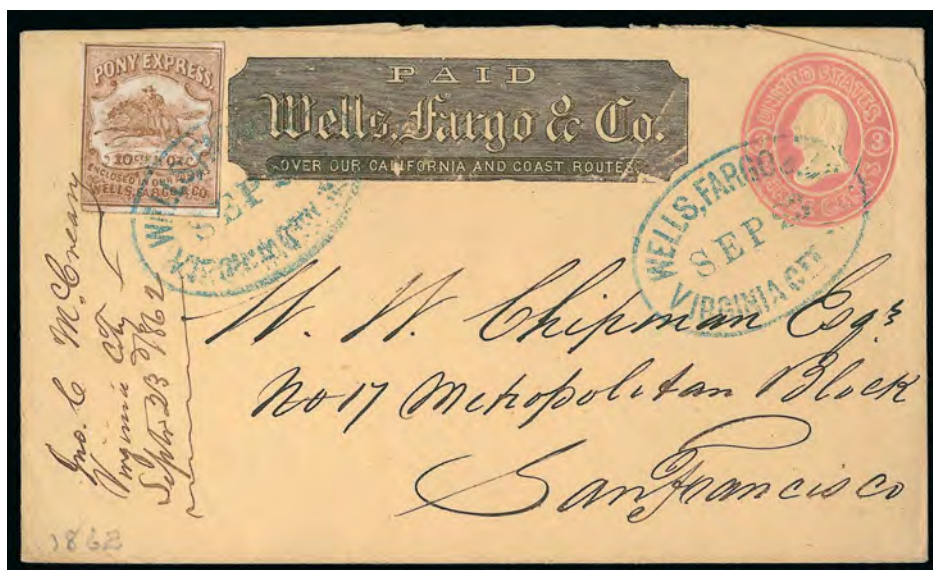 PONY EXPRESS
10
ENCLOSED IN OUR FRANKS
WELLS, FARGO & CO.
PAID
Wells, Fargo & Co.
OVER OUR CALIFORNIA AND COAST ROUTES
UNITED STATES
3
CENTS
WELLS, FARGO
SEP
VIRGINIA CITY
WELLS, FARGO
SEP
VIRGINIA CITY
Jno. C McCreary
Virginia City
Septr 23d 1862
W. W. Chipman Esqr
No 17 Metropolitan Block
San Francisco
1862